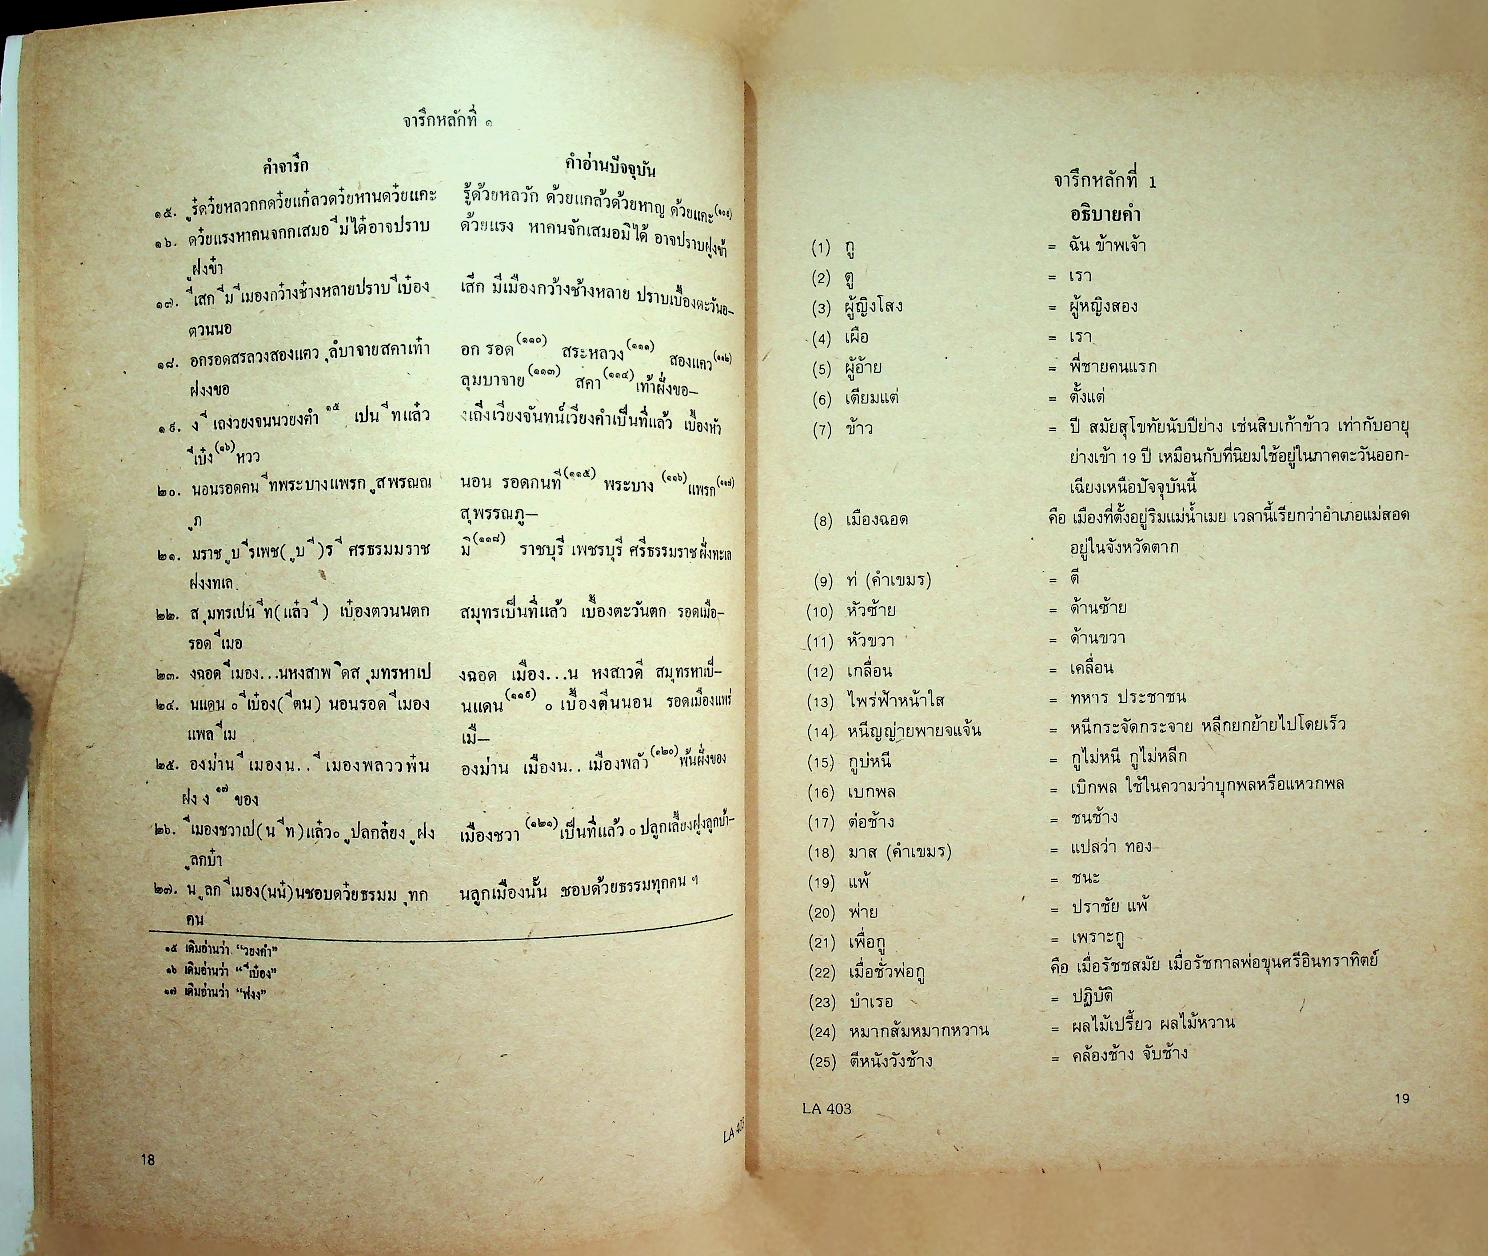 จารึกหลักที่ ๑
คำจารึก
คำอ่านปัจจุบัน
๑๕. ูร๋ดว๋ยหลวกกดว๋ยแก๋ลวดว๋ยหานดว๋ยแคะ
รู้ด้วยหลวัก ด้วยแกล้วด้วยหาญ ด้วยแคะ(๑๐๙)
๑๖. ดว๋ยแรงหาคนจกกเสมอ ีม่ได๋อาจปราบ
ด้วยแรง หาคนจักเสมอมิได้ อาจปราบฝูงข้า
ูฝงข๋า
๑๗. ีเสก ีม ีเมองกว๋างช๋างหลายปราบ ีเบ๋อง
เสิก มีเมืองกว้างช้างหลาย ปราบเบื้องตะวันอ-
ตวนนอ
๑๘. อกรอดสรลวงสองแตว ุล๋บาจายสคาเท๋า
อก รอด(๑๑๐) สระหลวง(๑๑๑) สองแคว(๑๑๒)
ฝงงขอ
ลุมบาจาย(๑๑๓) สคา(๑๑๔)เท้าฝั่งขอ–
๑๙. ง ีเถงวยงจนนวยงคำ ๑๕ เปน ีทแล๋ว
งเถึงเวียงจันทน์เวียงคำเป็นที่แล้ว เบื้องหัว
ีเบ๋ง(๑๖)หวว
๒๐. นอนรอดคน ีทพระบางแพรก ูสพรณณ
นอน รอดกนที(๑๑๕) พระบาง (๑๑๖)แพรก(๑๑๗)
ูภ
สุพรรณภู–
๒๑. มราช ูบ ีรเพช( ูบ ี)ร ี ศรธรมมราช
มิ(๑๑๘) ราชบุรี เพชรบุรี ศรีธรรมราช ฝั่งทะเล
ฝงงทเล
๒๒. ส ุมทรเปน ีท(แล๋ว ี) เบ๋องตวนนตก
สมุทรเป็นที่แล้ว เบื้องตะวันตก รอดเมือ–
รอด ีเมอ
๒๓. งฉอด ีเมือง...นหงสาพ ิดส ุมทรหาเป
งฉอด เมือง...น หงสาวดี สมุทรหาเป็–
๒๔. นแดน ๐ ีเบ๋อง( ีตน) นอนรอด ีเมอง
นแดน(๑๑๙) ๐ เบื้องตีนนอน รอดเมืองแพร่
แพล ีเม
เมื–
๒๕. องม่าน ีเมองน.. ีเมองพลววพ๋น
องม่าน เมืองน.. เมืองพลัว(๑๒๐)พ้นฝั่งของ
ฝง ง ๑๗ ของ
๒๖. ีเมองชวาเป(น ีท)แล๋ว๐ ูปลกล๋ยง ูฝง
เมืองชวา (๑๒๑)เป็นที่แล้ว ๐ ปลูกเลี้ยงฝูงลูกบ้า–
ูลกบ๋า
๒๗. น ูลก ีเมอง(นน๋)นชอบดว๋ยธรมม ุทก
นลูกเมืองนั้น ชอบด้วยธรรมทุกคน ฯ
คน
๑๕ เดิมอ่านว่า “วยงคำ”
๑๖ เดิมอ่านว่า “ ีเบ๋อง”
๑๗ เดิมอ่านว่า “ฟงง”
18
จารึกหลักที่ 1
อธิบายคำ
(1) กู = ฉัน ข้าพเจ้า
(2) ตู = เรา
(3) ผู้ญิงโสง = ผู้หญิงสอง
(4) เผือ = เรา
(5) ผู้อ้าย = พี่ชายคนแรก
(6) เตียมแต่ = ตั้งแต่
(7) ข้าว = ปี สมัยสุโขทัยนับปีย่าง เช่นสิบเก้าข้าว เท่ากับอายุ
ย่างเข้า 19 ปี เหมือนกับที่นิยมใช้อยู่ในภาคตะวันออก-
เฉียงเหนือปัจจุบันนี้
(8) เมืองฉอด คือ เมืองที่ตั้งอยู่ริมแม่น้ำเมย เวลานี้เรียกว่าอำเภอแม่สอด
อยู่ในจังหวัดตาก
(9) ท่ (คำเขมร) = ตี
(10) หัวซ้าย = ด้านซ้าย
(11) หัวขวา = ด้านขวา
(12) เกลื่อน = เคลื่อน
(13) ไพร่ฟ้าหน้าใส = ทหาร ประชาชน
(14) หนีญญ่ายพายจแจ้น = หนีกระจัดกระจาย หลีกยกย้ายไปโดยเร็ว
(15) กูบ่หนี = กูไม่หนี กูไม่หลีก
(16) เบกพล = เบิกพล ใช้ในความว่าบุกพลหรือแหวกพล
(17) ต่อช้าง = ชนช้าง
(18) มาส (คำเขมร) = แปลว่า ทอง
(19) แพ้ = ชนะ
(20) พ่าย = ปราชัย แพ้
(21) เพื่อกู = เพราะกู
(22) เมื่อชั่วพ่อกู คือ เมื่อรัชชสมัย เมื่อรัชกาลพ่อขุนศรีอินทราทิตย์
(23) บำเรอ = ปฏิบัติ
(24) หมากส้มหมากหวาน = ผลไม้เปรี้ยว ผลไม้หวาน
(25) ตีหนังวังช้าง = คล้องช้าง จับช้าง
LA 403
19